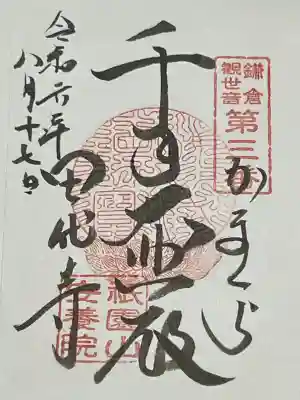 鎌倉
觀世音
第三番
かまくら
千手大悲殿
田代寺
令和六年
八月十七日
祇園山
安養院